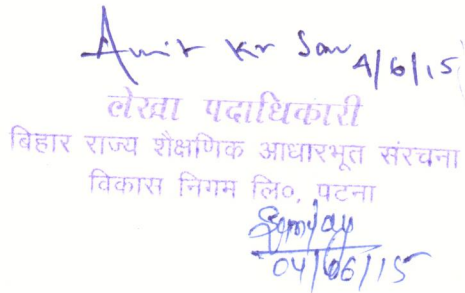 Amit Kr Sav 4/6/15
लेखा पदाधिकारी
बिहार राज्य शैक्षणिक आधारभूत संरचना
विकास निगम लि०, पटना
04/06/15